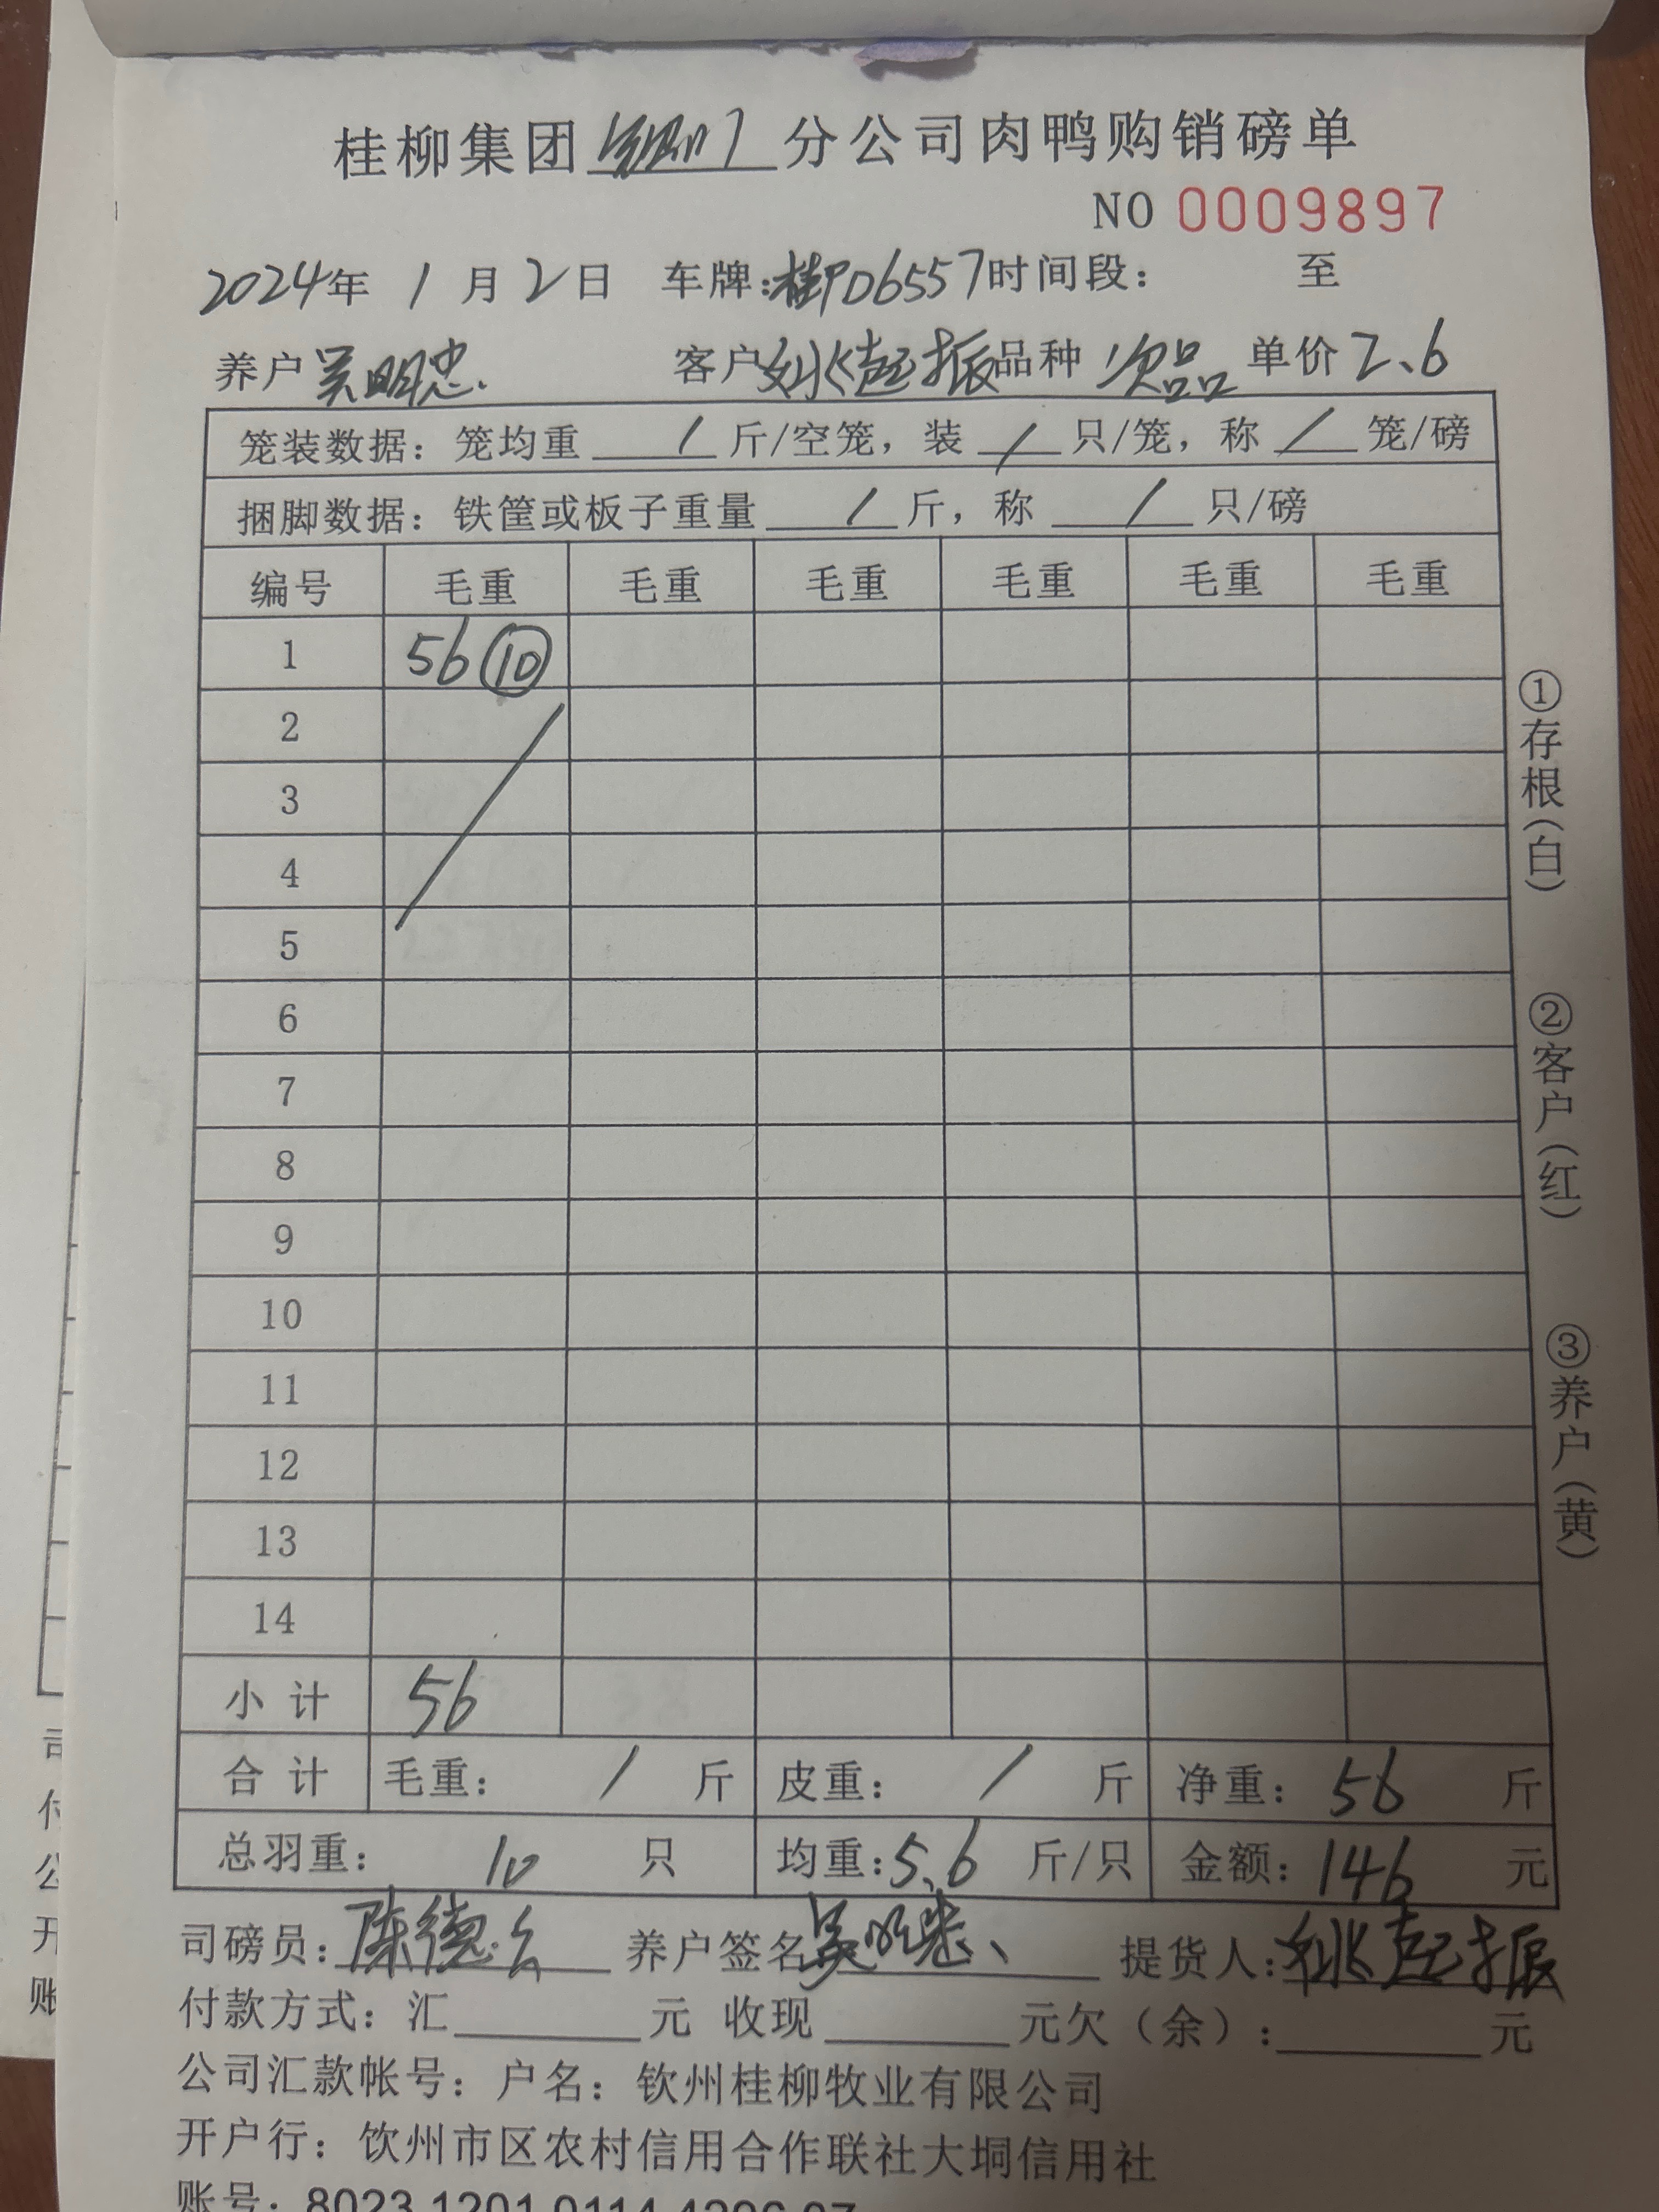 桂柳集团 分公司肉鸭购销磅单
NO 0009897
2024年 1 月 2 日 车牌:桂PD6557 时间段: 至
养户 吴明忠 客户 姚起振 品种 次品 单价 2.6
笼装数据: 笼均重 / 斤/空笼, 装 / 只/笼, 称 / 笼/磅
捆脚数据: 铁筐或板子重量 / 斤, 称 / 只/磅
编号 毛重 毛重 毛重 毛重 毛重 毛重
1 56 ⑩
2
3
4
5
6
7
8
9
10
11
12
13
14
小计 56
合计 毛重: / 斤 皮重: / 斤 净重: 56 斤
总羽重: 10 只 均重: 5.6 斤/只 金额: 146 元
司磅员: 陈德 养户签名 吴明忠 提货人: 姚起振
付款方式: 汇 元 收现 元欠(余): 元
公司汇款帐号: 户名: 钦州桂柳牧业有限公司
开户行: 钦州市区农村信用合作联社大垌信用社
账号:
①存根(白)
②客户(红)
③养户(黄)
司
付
公
开
账